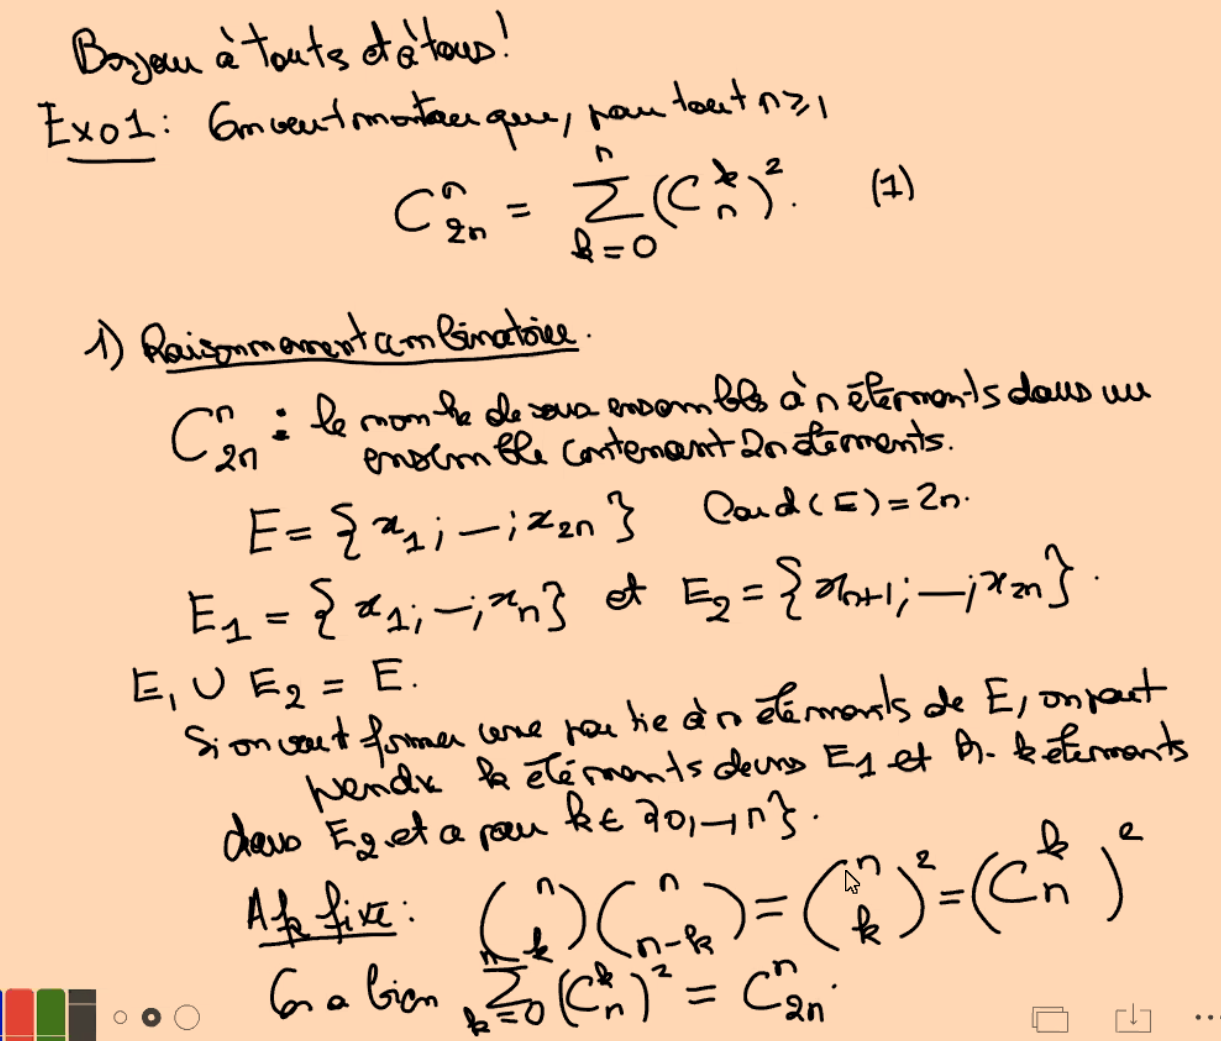 Bonjour à toutes et à tous!
Exo1: On veut montrer que, pour tout n ≥ 1
C_{2n}^{n} = \sum_{k=0}^{n} (C_n^k)^2. (1)
1) Raisonnement combinatoire.
C_{2n}^{n} : le nombre de sous ensembles à n éléments dans un
ensemble contenant 2n éléments.
E = {x_1; —; x_{2n}} Card(E) = 2n.
E_1 = {x_1; —; x_n} et E_2 = {x_{n+1}; —; x_{2n}}.
E_1 ∪ E_2 = E.
Si on veut former une partie à n éléments de E, on peut
prendre k éléments dans E_1 et n-k éléments
dans E_2 et ce pour k ∈ {0, —, n}.
A k fixé: \binom{n}{k} \binom{n}{n-k} = \binom{n}{k}^2 = (C_n^k)^2
On a bien \sum_{k=0}^{n} (C_n^k)^2 = C_{2n}^{n}.